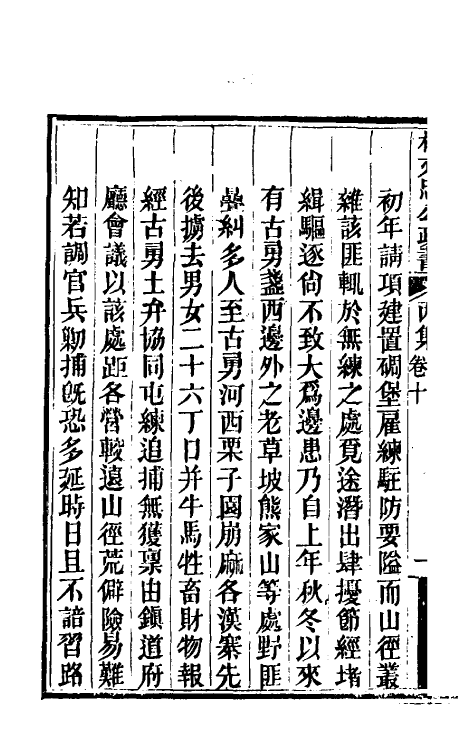 林文忠公政書 丙集卷十
初年請項建置碉堡雇練駐防要隘而山徑叢
雜該匪輒於無練之處覓途潛出肆擾節經堵
緝驅逐尙不致大爲邊患乃自上年秋冬以來
有古勇盞西邊外之老草坡熊家山等處野匪
糾多人至古勇河西栗子園崩麻各漢寨先
後擄去男女二十六丁口并牛馬牲畜財物報
經古勇土弁協同屯練追捕無獲稟由鎭道府
廳會議以該處距各營較遠山徑荒僻險易難
知若調官兵勦捕旣恐多延時日且不諳習路